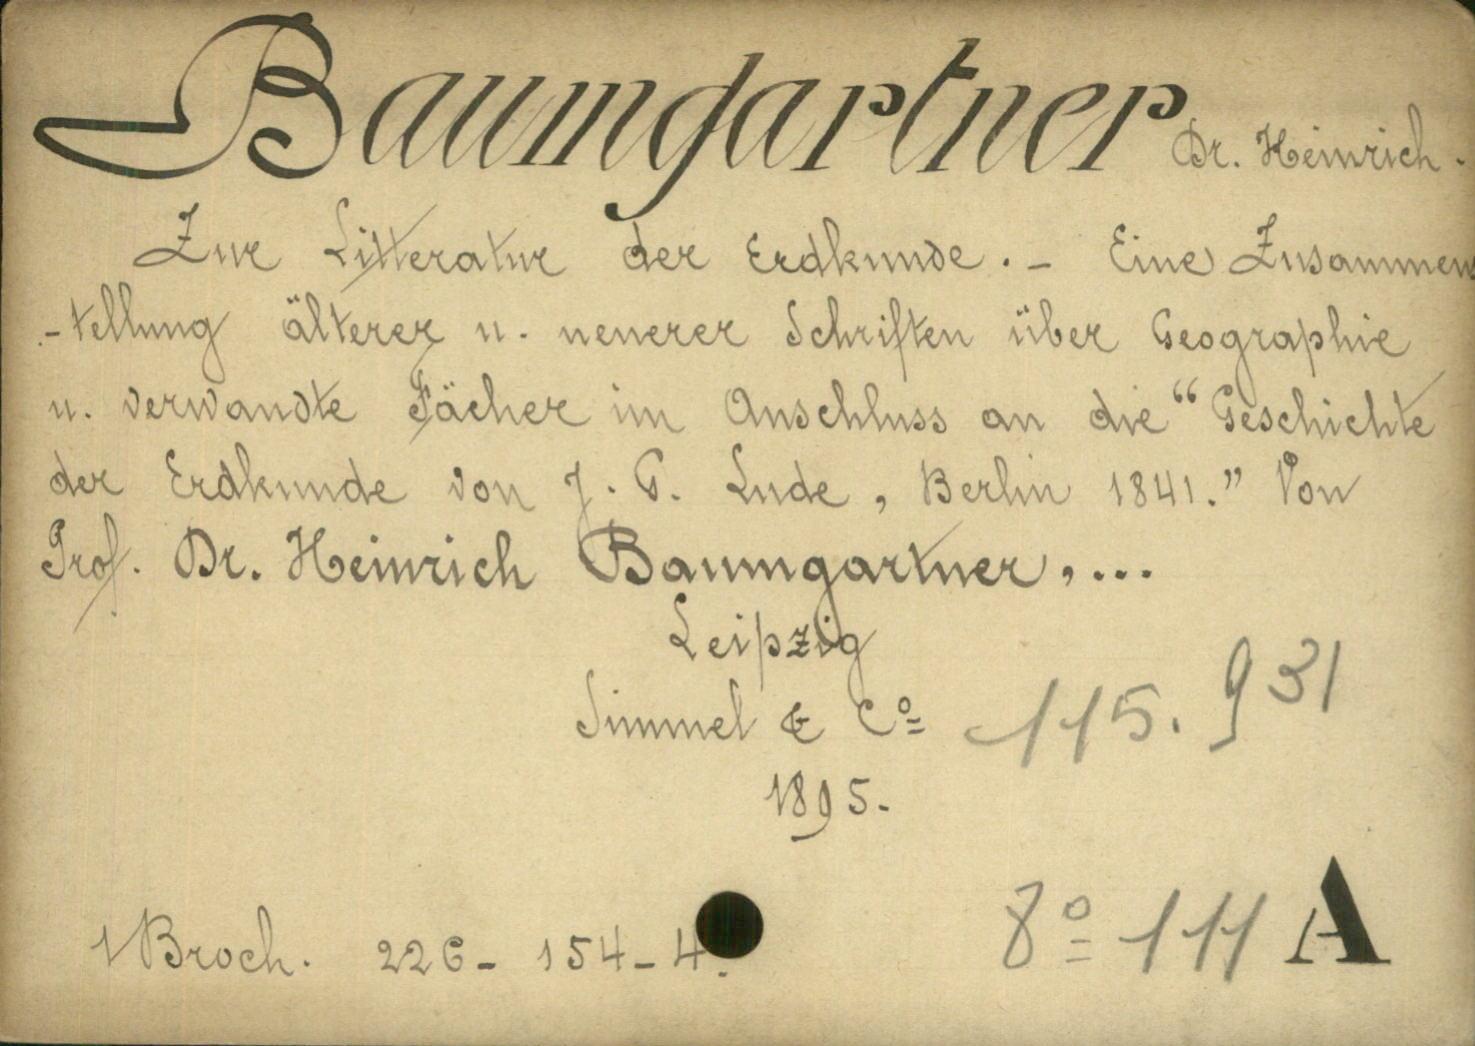 Baumgartner Dr. Heinrich.
Zur Litteratur der Erdkunde. - Eine Zusammens
-tellung älterer u. neuerer Schriften über Geographie
u. verwandte Fächer im Anschluss an die "Geschichte
der Erdkunde von J. G. Lude, Berlin 1841." Von
Prof. Dr. Heinrich Baumgartner, ...
Leipzig
Simmel & Cº
1895.
115.931
1 Broch. 226 - 154 - 4.
8º 111 A